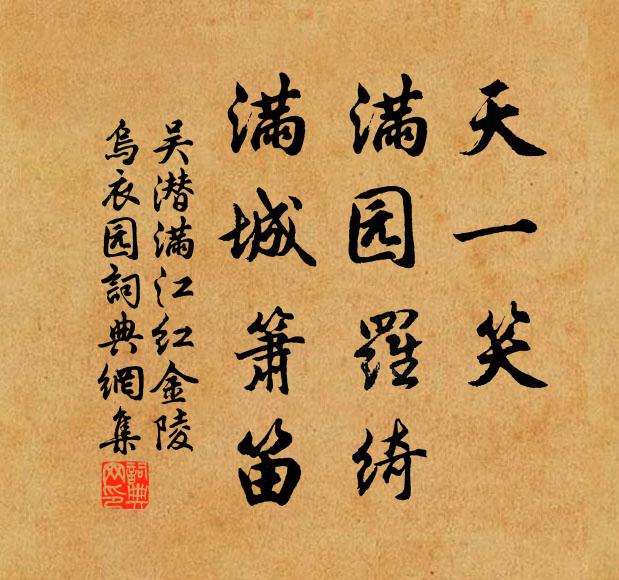 天一笑
满园羅绮
满城箫笛
吴潜满江红金陵
乌衣园詞典網集
詞典网印